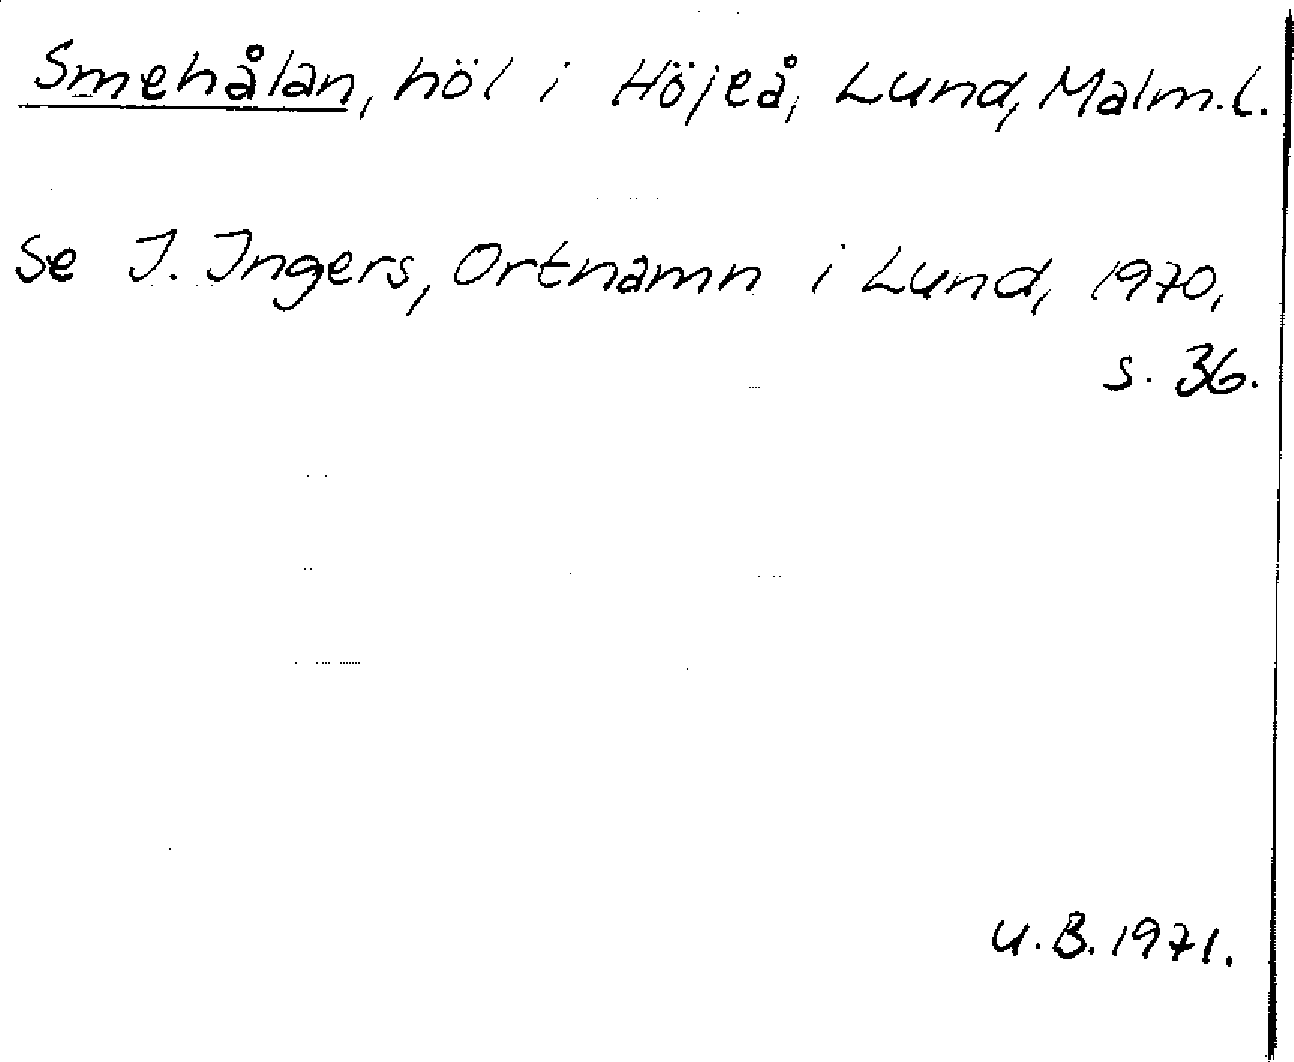 Smehålan, höl i Höjeå, Lund, Malm.l.
Se I. Ingers, Ortnamn i Lund, 1970,
s. 36.
U.B. 1971.